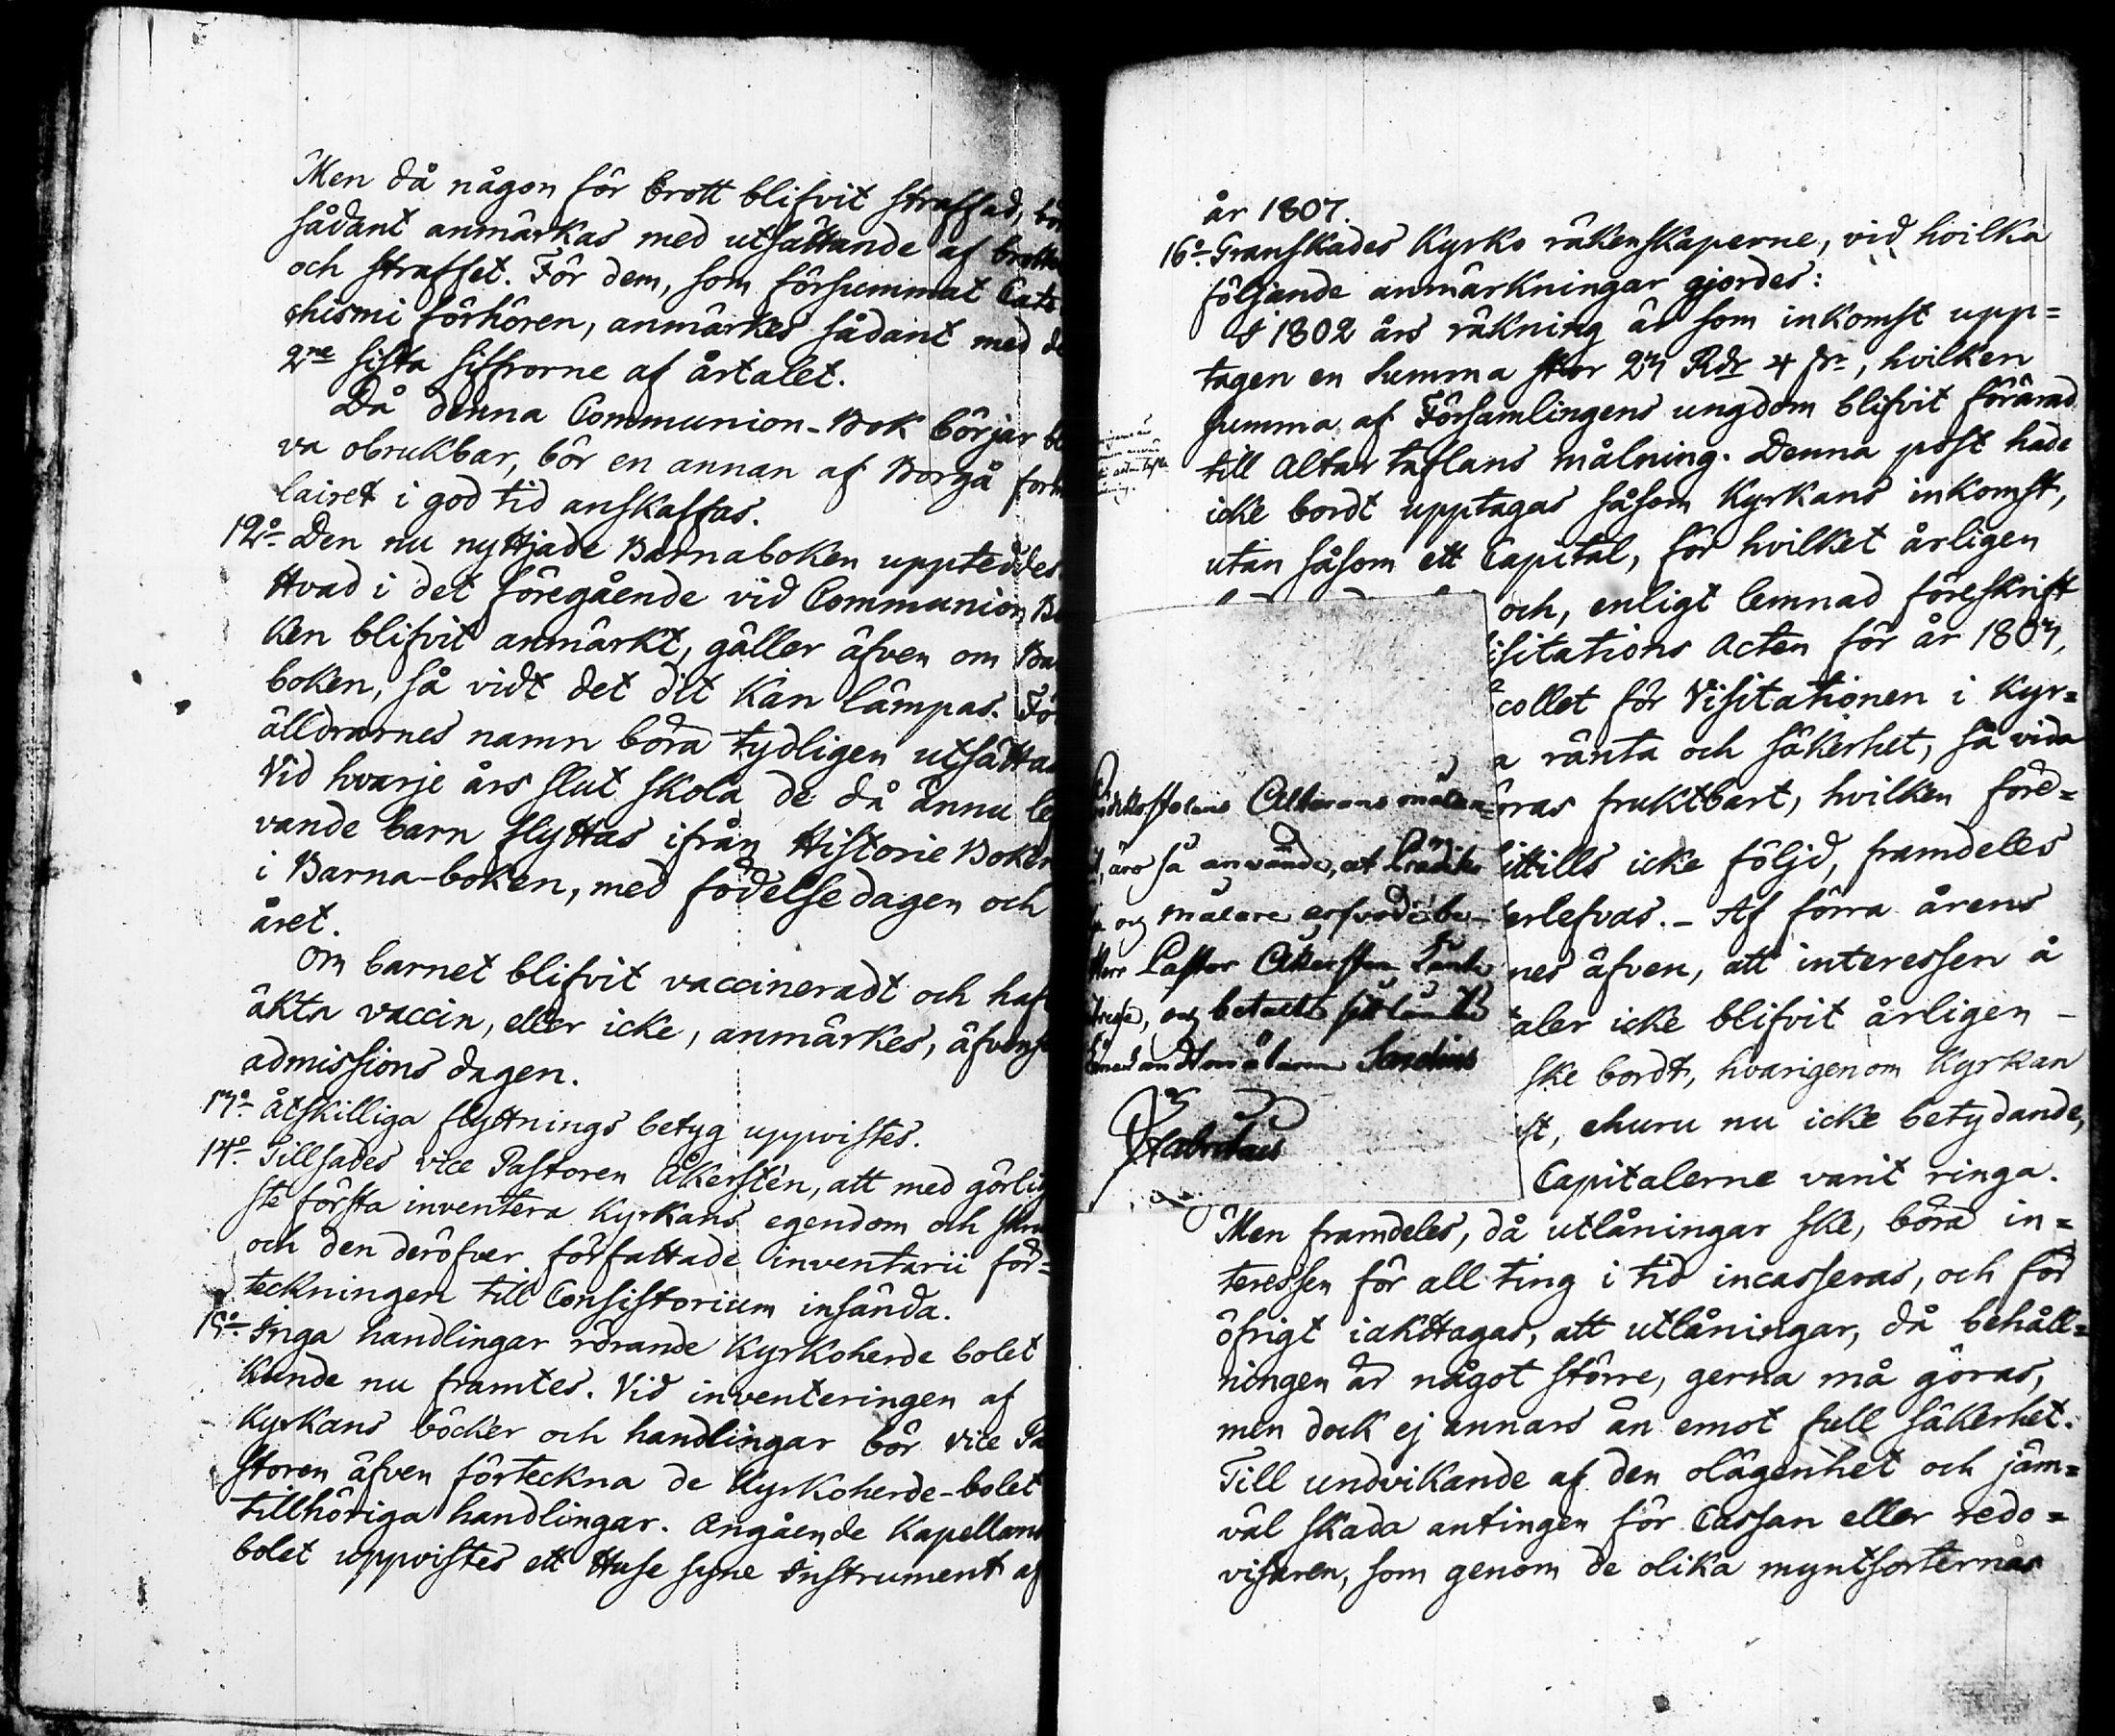 Men då någon för brott blifvit straffad,
sådant anmärkas med utsättande af
och straffet. För dem, som försummat Cate
chismi förhören, anmärkes sådant med
2ne sista siffrorne af årtalet.
Då denna Communion-Bok börjar
va obrukbar, bör en annan af Borgå
lairet i god tid anskaffas.
12o Den nu nyttjade Barnaboken uppteddes
Hvad i det föregående vid Communion
ken blifvit anmärkt, gäller äfven om
boken, så vidt det dit kan lämpas. Fö
älldrarnes namn böra tydligen utsättas
Vid hvarje års slut skola de då ännu le
vande barn flyttas ifrån Historie Boken
i Barna-boken, med födelse dagen och
året.
Om barnet blifvit vaccineradt och haft
äkta vaccin, eller icke, anmärkes, äfven
admissions dagen.
13o Åtskilliga flyttnings betyg uppvistes.
14o Tillsades vice Pastoren Åkerstén, att med görlig
ste första inventera Kyrkans egendom och
och den deröfver författade inventarii för=
teckningen till Consistorium insända.
15o Inga handlingar rörande Kyrkoherde bolet
kunde nu framtes. Vid inventeringen af
Kyrkans böcker och handlingar bör vice Pa
storen äfven förteckna de Kyrkoherde-bolet
tillhöriga handlingar. Angående Kapellans
bolet uppvistes ett Huse syne Instrument af
år 1807.
16o Granskades Kyrko räkenskaperne, vid hvilka
följande anmärkningar gjordes:
I 1802 års räkning är som inkomst upp=
tagen en summa stor 27 Rdr 4 , hvilken
summa af Församlingens ungdom blifvit förärad
till Altar taflans målning. Denna post hade
icke bordt upptagas såsom Kyrkans inkomst,
utan såsom ett Capital, för hvilket årligen
och, enligt lemnad föreskrift
isitations Acten för år 1807,
collet för Visitationen i Kyr=
a ränta och säkerhet, så vida
öras fruktbart, hvilken före=
ittills icke följd, framdeles
erlefvas. - Af förra årens
nes äfven, att interessen å
taler icke blifvit årligen -
ske bordt, hvarigenom Kyrkan
st, ehuru nu icke betydande,
Capitalerne varit ringa.
Altarans målan=
äro så använde, at
og målare arfvode be-
Herr Pastor Åkersten
og betalt
Men framdeles, då utlåningar ske, böra in=
teressen för all ting i tid incasseras, och för
öfrigt iakttagas, att utlåningar, då behåll=
ningen är något större, gerna må göras,
men dock ej annars än emot full säkerhet.
Till undvikande af den olägenhet och jäm=
väl skada antingen för Cassan eller redo=
visaren, som genom de olika myntsorternas